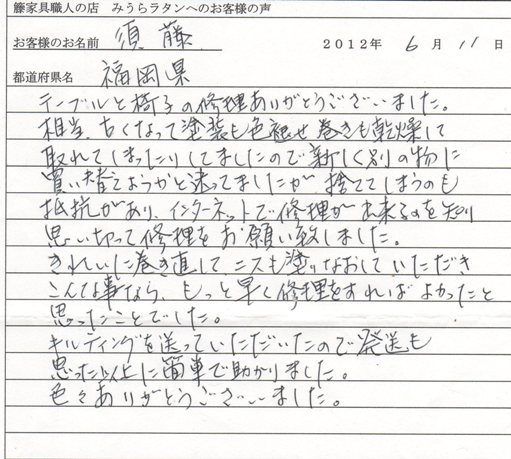 籐家具職人の店　みうらラタンへのお客様の声
お客様のお名前　須藤　2012年 6月 11日
都道府県名　福岡県
テーブルと椅子の修理ありがとうございました。
相当、古くなって塗装も色褪せ巻きも乾燥して
取れてしまったりしてましたので新しく別の物に
買い替えようかと迷ってましたが捨ててしまうのも
抵抗があり、インターネットで修理が出来るのを知り
思い切って修理をお願い致しました。
きれいに巻き直して、ニスも塗りなおしていただき
こんな事なら、もっと早く修理をすればよかったと
思ったことでした。
キルティングを送っていただいたので発送も
思った以上に簡単で助かりました。
色々ありがとうございました。